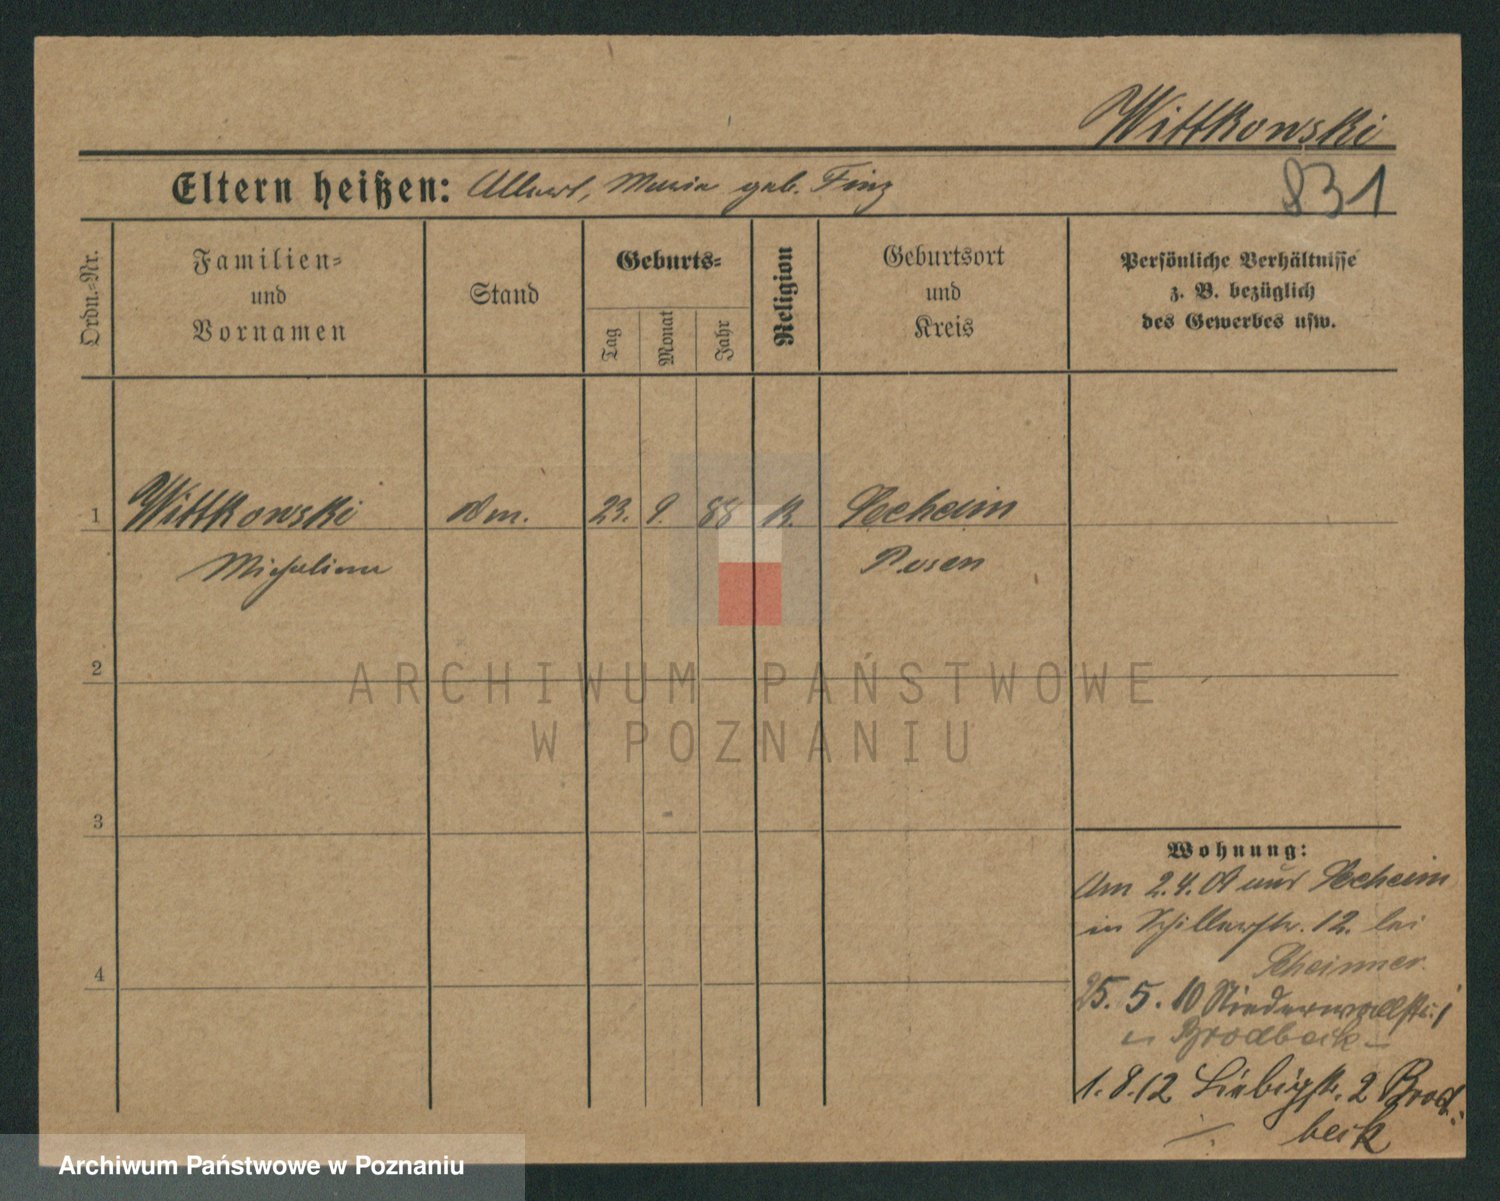 Wittkowski
831
Eltern heißen: Albert, Maria geb. Finz
Ordn.-Nr.
Familien-
und
Vornamen
Stand
Geburts-
Tag
Monat
Jahr
Religion
Geburtsort
und
Kreis
Persönliche Verhältnisse
z. B. bezüglich
des Gewerbes usw.
1 Wittkowski 23. 9. 88 K. Seeheim
Michalina Posen
2
ARCHIWUM PAŃSTWOWE
W POZNANIU
3
Wohnung:
Am 2.4.09 aus Seeheim
in Schillerstr. 12. bei
4
25. 5. 10 Niederwallstr. 1
Brodbeck
1. 8. 12 Liebigstr. 2 Brod-
beck
Archiwum Państwowe w Poznaniu